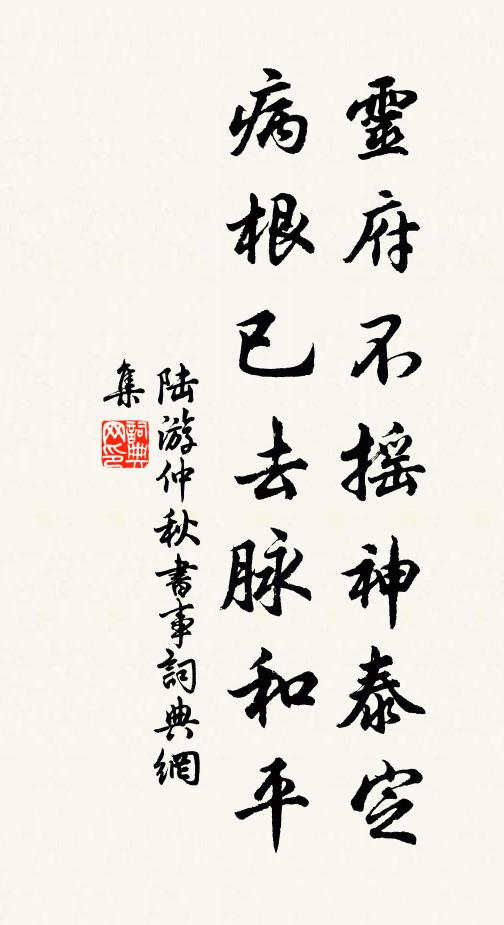 靈府不摇神泰定
病根已去脉和平
陆游仲秋書事詞典網
集
詞典
网印